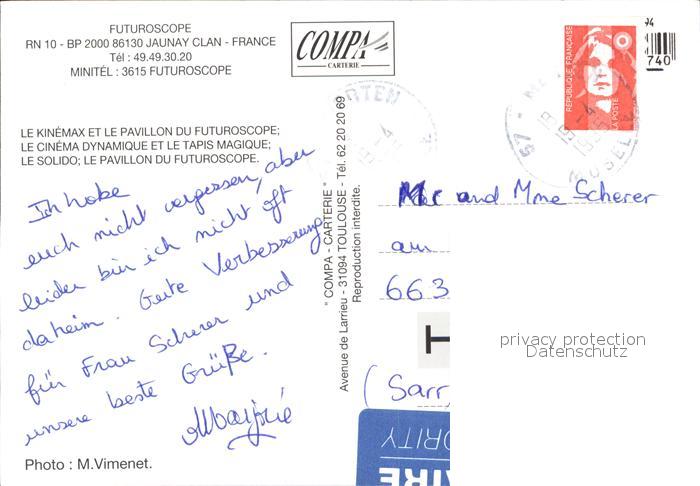 FUTUROSCOPE
RN 10 - BP 2000 86130 JAUNAY CLAN - FRANCE
Tél : 49.49.30.20
MINITÉL : 3615 FUTUROSCOPE
COMPA
CARTERIE
REPUBLIQUE FRANÇAISE
LA POSTE
740
57 -
18 H
19-4
1995
MOSELLE
LE KINÉMAX ET LE PAVILLON DU FUTUROSCOPE;
LE CINÉMA DYNAMIQUE ET LE TAPIS MAGIQUE;
LE SOLIDO; LE PAVILLON DU FUTUROSCOPE.
Ich habe
euch nicht vergessen, aber
leider bin ich nicht oft
daheim. Gute Verbesserung
für Frau Scherer und
unsere beste Grüße.
Marjorie
Photo : M.Vimenet.
" COMPA - CARTERIE "
Avenue de Larrieu - 31094 TOULOUSE - Tél. 62 20 20 69
Reproduction interdite.
Mr and Mme Scherer
am
663
H
(Sarr
privacy protection
Datenschutz